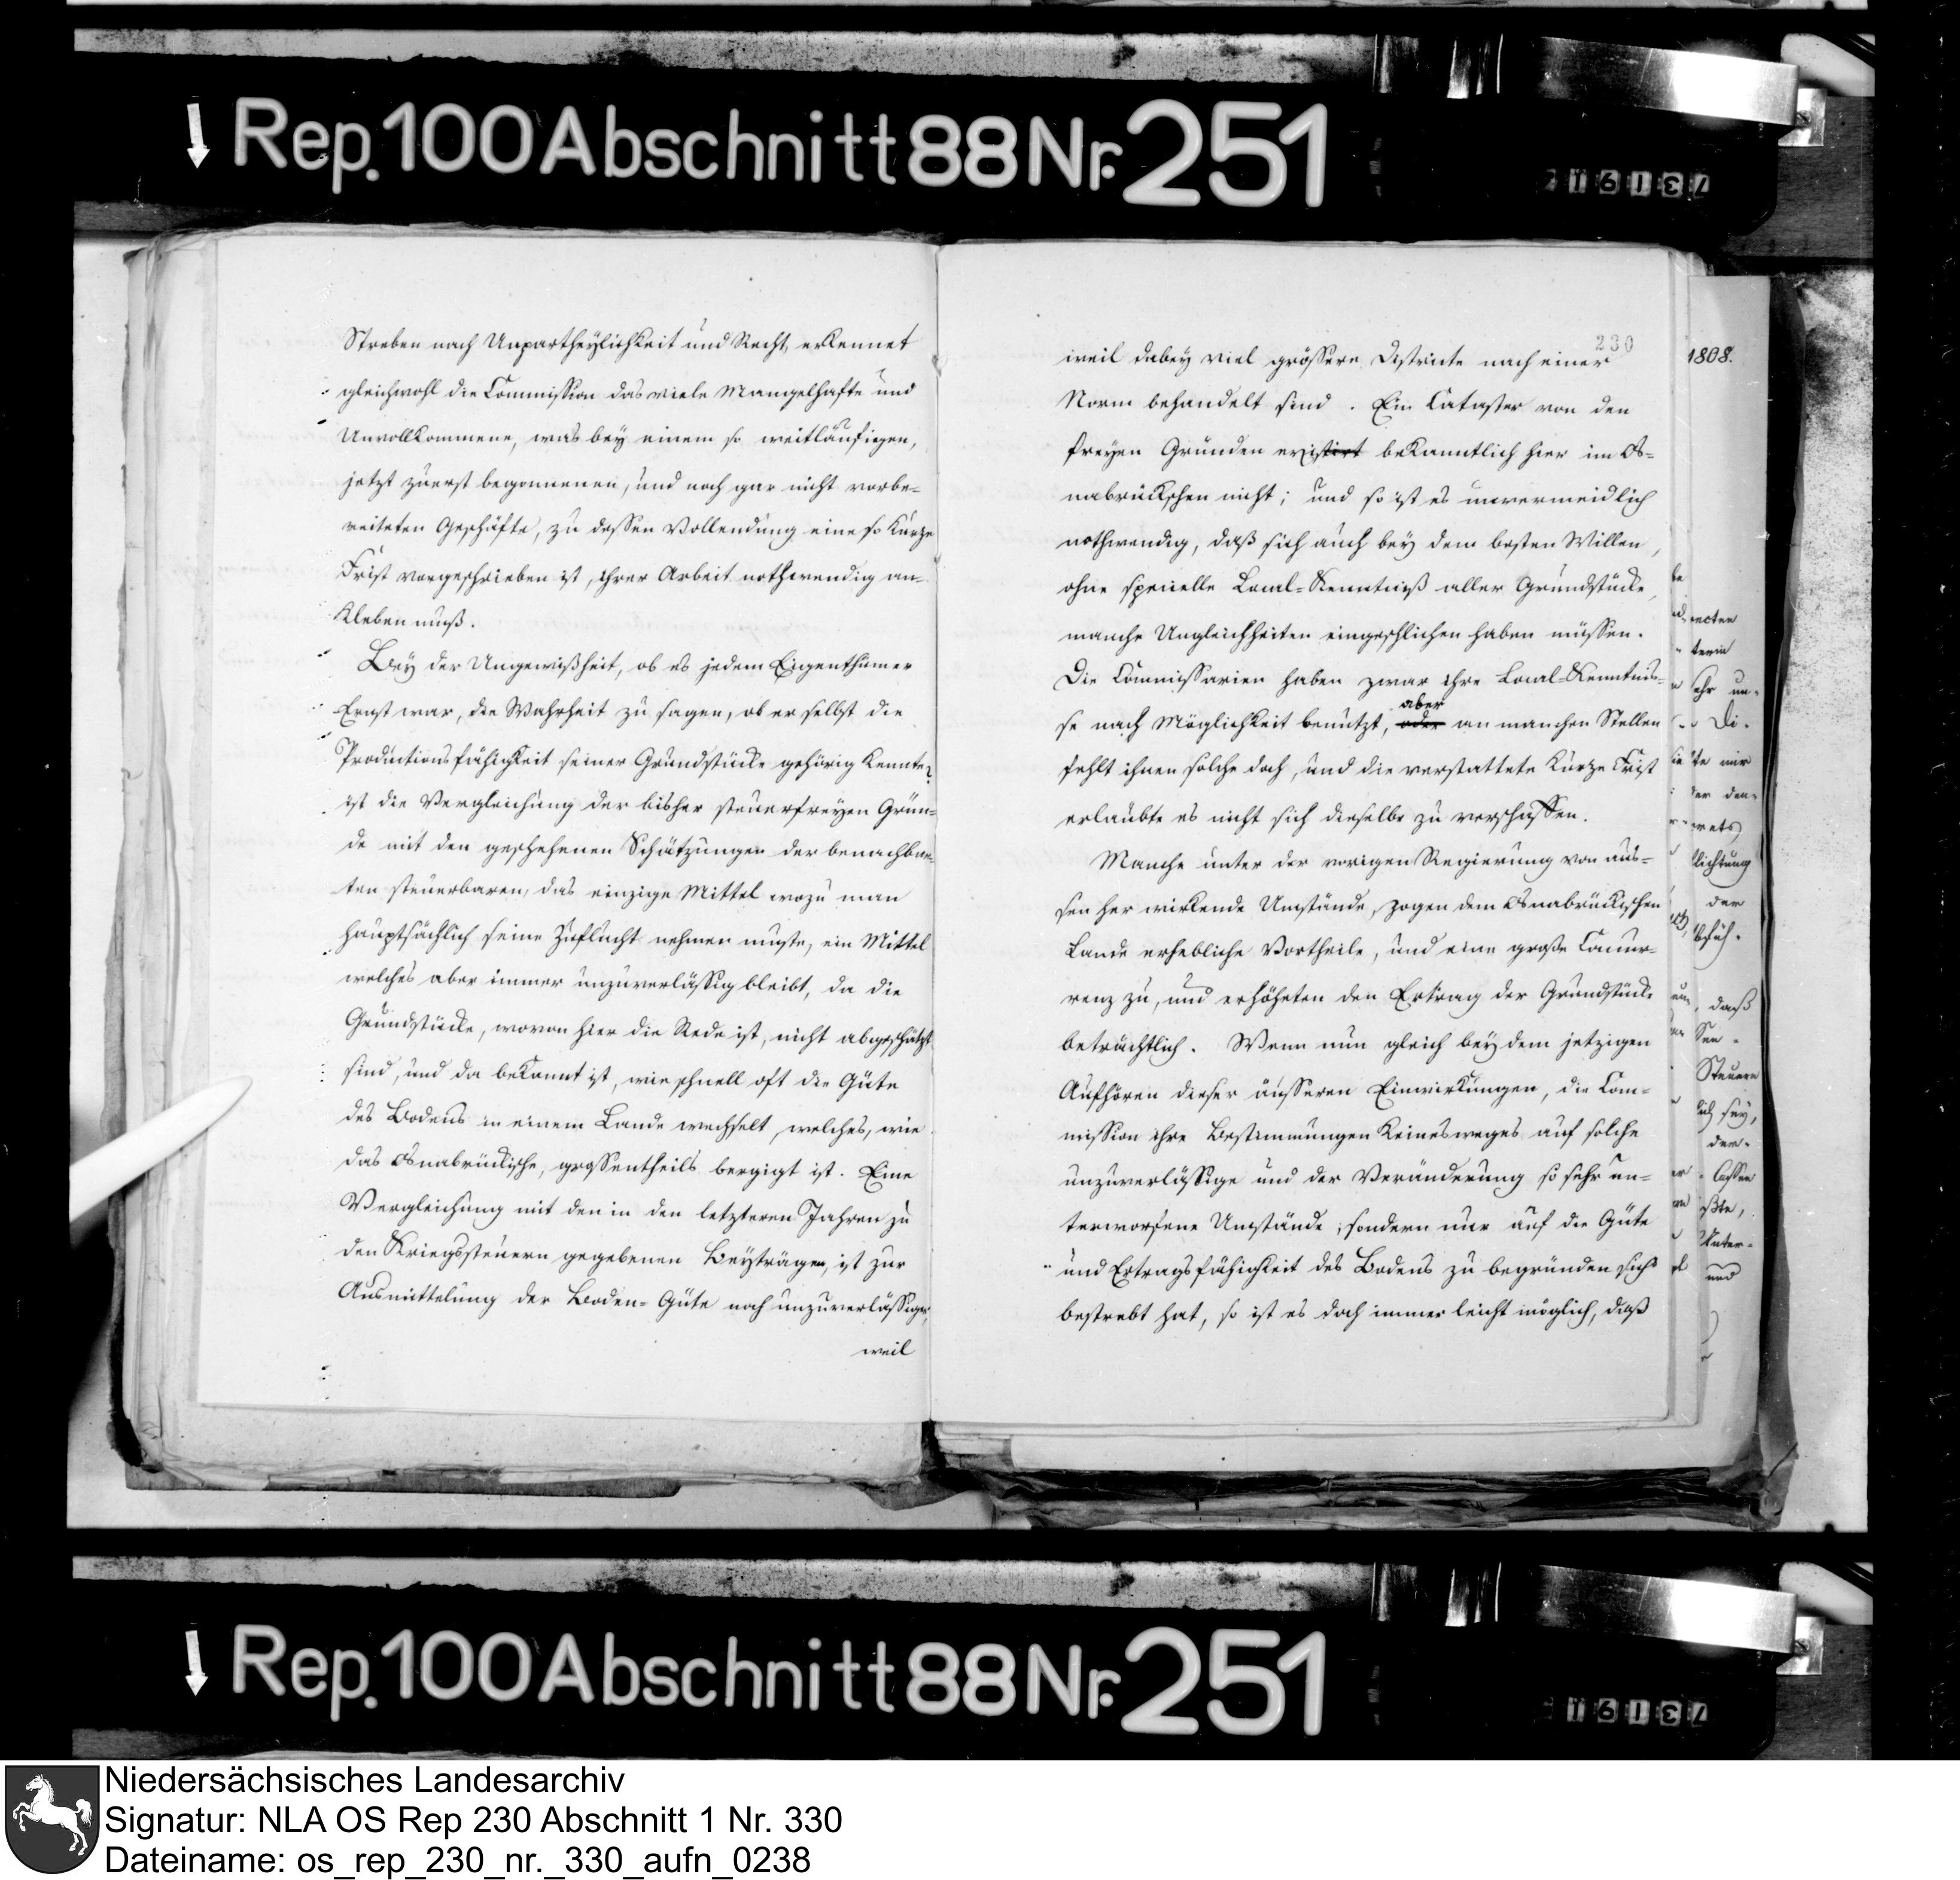 Rep. 100 Abschnitt 88 Nr. 251
Streben nach Unpartheylichkeit und Recht, erkennet
gleichwohl die Commission das viele Mangelhafte und
Unvollkommene, was bey einem so weitläufigen,
jetzt zuerst begonnenen, und noch gar nicht vorbe-
reiteten Geschäfte, zu dessen Vollendung eine so kurze
Frist vorgeschrieben ist, ihrer Arbeit nothwendig an-
kleben muß.
Bey der Ungewißheit, ob es jedem Eigenthümer
Ernst war, die Wahrheit zu sagen, ob er selbst die
Productionsfähigkeit seiner Grundstücke gehörig kennte,
ist die Vergleichung der bisher steuerfreyen Grün-
de mit den geschehenen Schätzungen der benachbar-
ten steuerbaren, das einzige Mittel wozu man
hauptsächlich seine Zuflucht nehmen muste, ein Mittel
welches aber immer unzuverlässig bleibt, da die
Grundstücke, wovon hier die Rede ist, nicht abgeschätzt
sind, und da bekannt ist, wie schnell oft die Güte
des Bodens in einem Lande wechselt, welches, wie
das Osnabrückische, grossentheils bergigt ist. Eine
Vergleichung mit den in den letzteren Jahren zu
den Kriegssteuern gegebenen Beyträgen, ist zur
Ausmittelung der Boden-Güte noch unzuverlässiger,
weil
230
weil dabey viel grössere Districte nach einer
Norm behandelt sind. Ein Cataster von den
freyen Gründen existirt bekanntlich hier im Os-
nabrückschen nicht; und so ist es unvermeidlich
nothwendig, daß sich auch bey dem besten Willen,
ohne specielle Local-Kenntniß aller Grundstücke,
manche Ungleichheiten eingeschlichen haben müssen.
Die Commissarien haben zwar ihre Local-Kenntnis-
aber
se nach Möglichkeit benutzt, oder an manchen Stellen
fehlt ihnen solche doch, und die verstattete kurze Frist
erlaubte es nicht sich dieselbe zu verschaffen.
Manche unter der vorigen Regierung von aus-
sen her wirkende Umstände, zogen dem Osnabrückischen
Lande erhebliche Vortheile, und eine große Concur-
renz zu, und erhöheten den Ertrag der Grundstücke
beträchtlich. Wenn nun gleich bey dem jetzigen
Aufhören dieser äusseren Einwirkungen, die Com-
mission ihre Bestimmungen keinesweges auf solche
unzuverlässige und der Veränderung so sehr un-
terworfene Umstände, sondern nur auf die Güte
und Ertragsfähigkeit des Bodens zu begründen sich
bestrebt hat, so ist es doch immer leicht möglich, daß
1808.
daß
Steuern
der
und
Rep. 100 Abschnitt 88 Nr. 251
Niedersächsisches Landesarchiv
Signatur: NLA OS Rep 230 Abschnitt 1 Nr. 330
Dateiname: os_rep_230_nr._330_aufn_0238